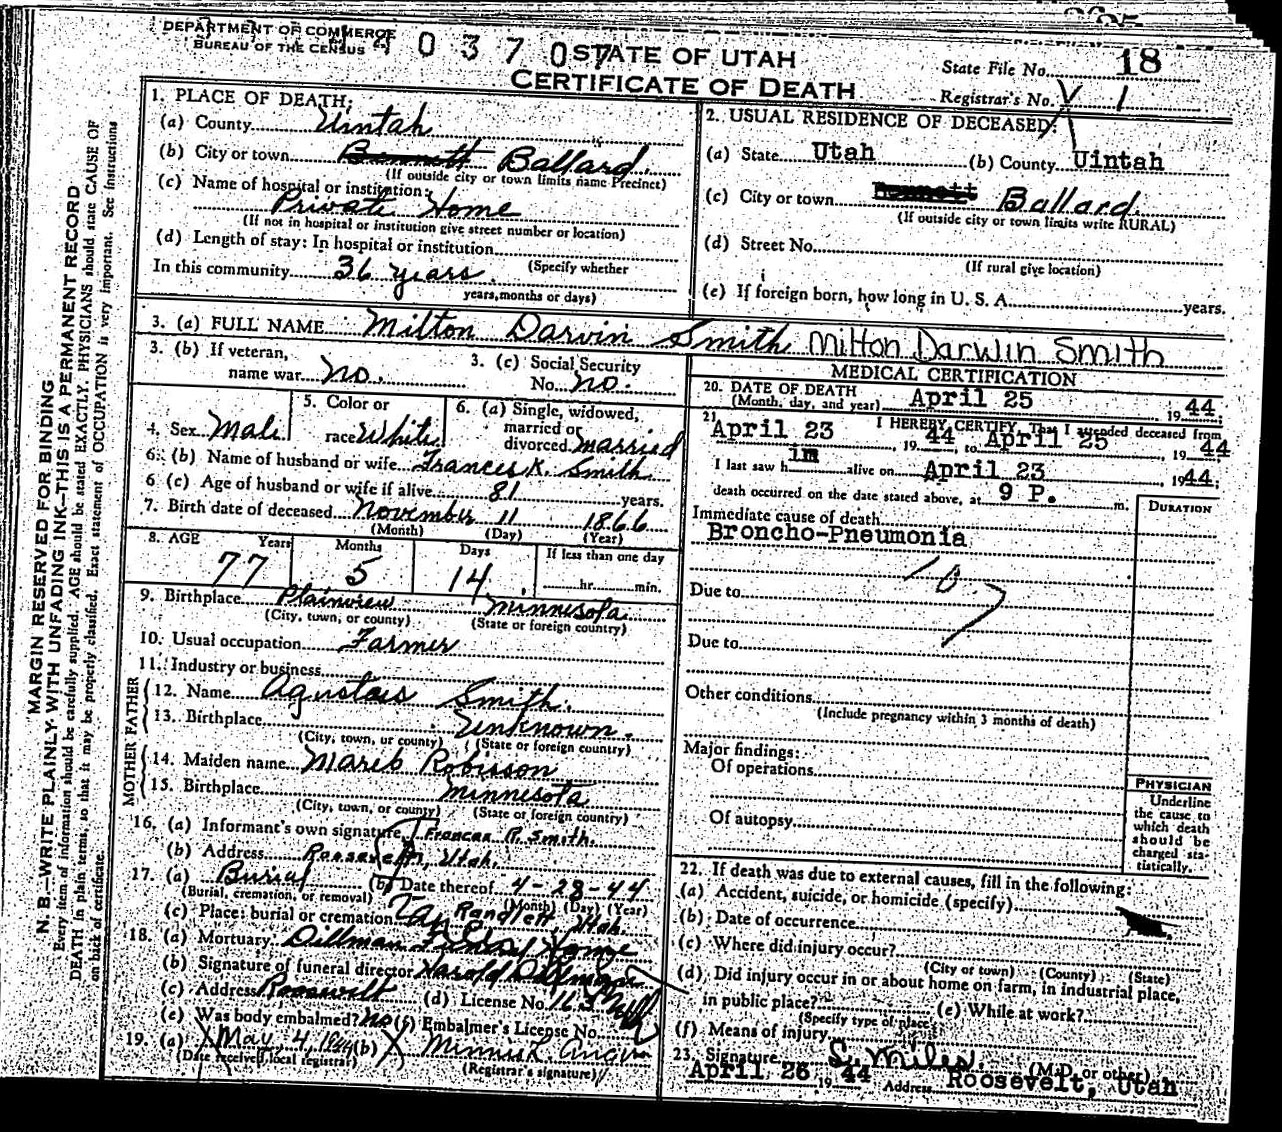 DEPARTMENT OF COMMERCE
BUREAU OF THE CENSUS
STATE OF UTAH
CERTIFICATE OF DEATH
State File No. 18
Registrar's No. 1
1. PLACE OF DEATH:
(a) County Uintah
(b) City or town Bennett Ballard
(If outside city or town limits name Precinct)
(c) Name of hospital or institution:
Private Home
(If not in hospital or institution give street number or location)
(d) Length of stay: In hospital or institution
(Specify whether
In this community 36 years.
years, months or days)
2. USUAL RESIDENCE OF DECEASED:
(a) State Utah (b) County Uintah
(c) City or town Bennett Ballard.
(If outside city or town limits write RURAL)
(d) Street No.
(If rural give location)
(e) If foreign born, how long in U. S. A. years.
3. (a) FULL NAME Milton Darvin Smith Milton Darwin Smith
3. (b) If veteran,
name war no.
3. (c) Social Security
No. no.
4. Sex Male
5. Color or
race White
6. (a) Single, widowed,
married or
divorced married
6. (b) Name of husband or wife Frances K. Smith
6 (c) Age of husband or wife if alive 81 years.
7. Birth date of deceased November 11 1866
(Month) (Day) (Year)
8. AGE Years Months Days If less than one day
77 5 14 hr. min.
9. Birthplace Plainview Minnesota
(City, town, or county) (State or foreign country)
10. Usual occupation Farmer
11. Industry or business
FATHER
12. Name Smith.
13. Birthplace Unknown.
(City, town, or county) (State or foreign country)
MOTHER
14. Maiden name Robisson
15. Birthplace Minnesota
(City, town, or county) (State or foreign country)
16. (a) Informant's own signature Smith.
(b) Address Roosevelt, Utah.
17. (a) Burial (b) Date thereof 4-28-44
(Burial, cremation, or removal) (Month) (Day) (Year)
(c) Place: burial or cremation Randlett Utah
18. (a) Mortuary Dillman Funeral Home
(b) Signature of funeral director Harold Dillman
(c) Address Roosevelt (d) License No. 163
(e) Was body embalmed? no (f) Embalmer's License No.
19. (a) May 4, 1944 (b)
(Date received local registrar) (Registrar's signature)
MEDICAL CERTIFICATION
20. DATE OF DEATH
(Month, day, and year) April 25 1944:
21. I HEREBY CERTIFY, That I attended deceased from
April 23 1944 to April 25 1944
I last saw him alive on April 23 1944:
death occurred on the date stated above, at 9 P. m.
DURATION
Immediate cause of death
Broncho-Pneumonia
107
Due to
Due to
Other conditions
(Include pregnancy within 3 months of death)
Major findings:
Of operations
Of autopsy
PHYSICIAN
Underline
the cause to
which death
should be
charged sta-
tistically.
22. If death was due to external causes, fill in the following:
(a) Accident, suicide, or homicide (specify)
(b) Date of occurrence
(c) Where did injury occur?
(City or town) (County) (State)
(d) Did injury occur in or about home on farm, in industrial place,
in public place? (e) While at work?
(Specify type of place)
(f) Means of injury
23. Signature S. Miles. (M.D. or other)
April 26 1944 Address Roosevelt, Utah
MARGIN RESERVED FOR BINDING
N. B.—WRITE PLAINLY WITH UNFADING INK—THIS IS A PERMANENT RECORD
Every item of information should be carefully supplied. AGE should be stated EXACTLY. PHYSICIANS should state CAUSE OF
DEATH in plain terms, so that it may be properly classified. Exact statement of OCCUPATION is very important. See instructions
on back of certificate.